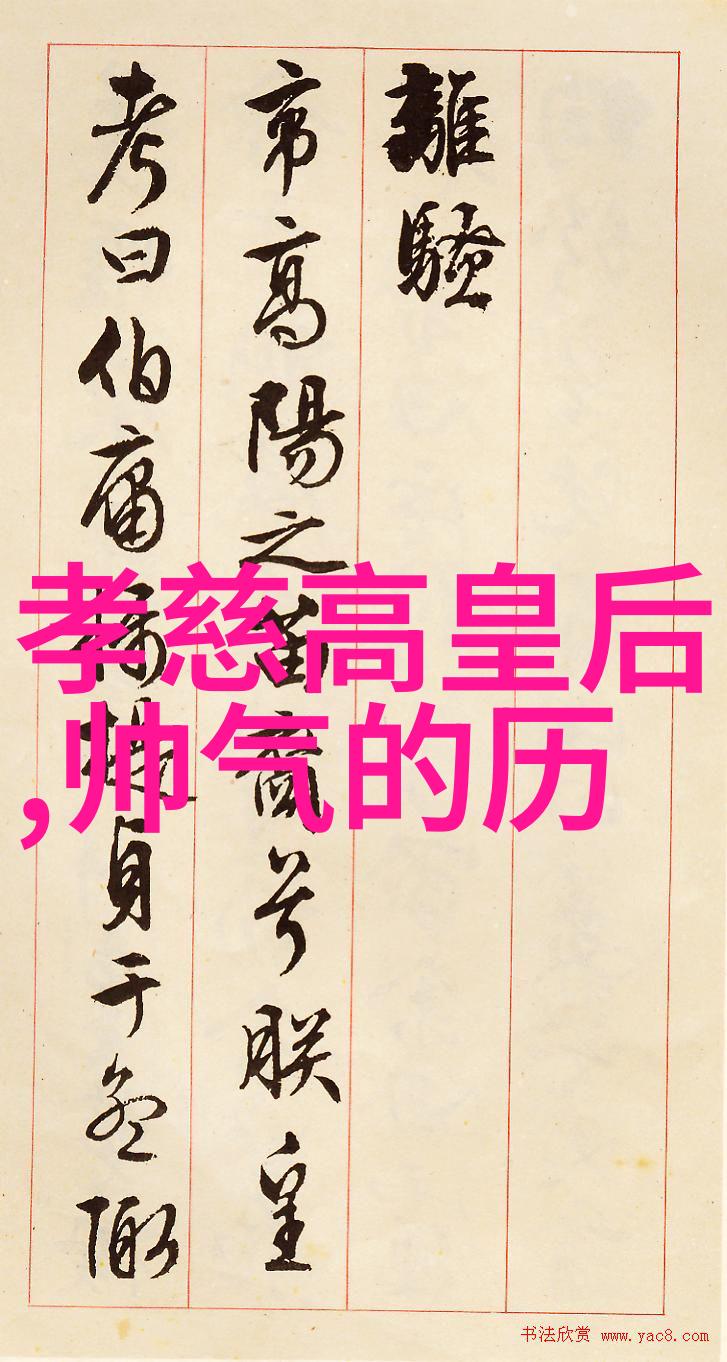 離騷
帝高陽之苗裔兮朕皇
考曰伯庸攝提貞于孟陬
孝慈高皇后
,帅气的历
书法欣赏 www.yac8.com